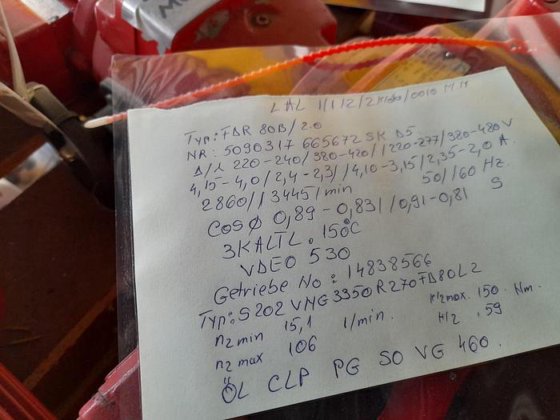 LAL 1/1/2/2
Typ: FDR 80B/2.0
NR: 5090317 665672 SK D5
Δ/⅄ 220-240/380-420//220-277/380-480 V
4,15-4,0/2,4-2,3//4,10-3,15/2,35-2,0 A
2860//3445/min 50//60 Hz
COSϕ 0,89-0,83//0,91-0,81 S
3KALTL. 150°C
VDEO 530
Getriebe No: 14838566
Typ: S202 VNG3350R270FD80L2
n2 min 15,1 1/min. max. 150 Nm.
n2 max 106 59
ÖL CLP PG SO VG 460.